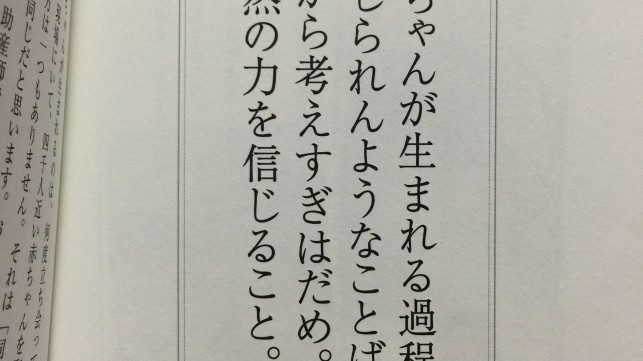 ちゃんが生まれる過程
じられんようなことば
から考えすぎはだめ。
然の力を信じること。
生まれるのは、何度立ち会って
現場にいて、四千人近い赤ちゃんを
方は一つもありません。それは「同
同じだと思います。お
助産師